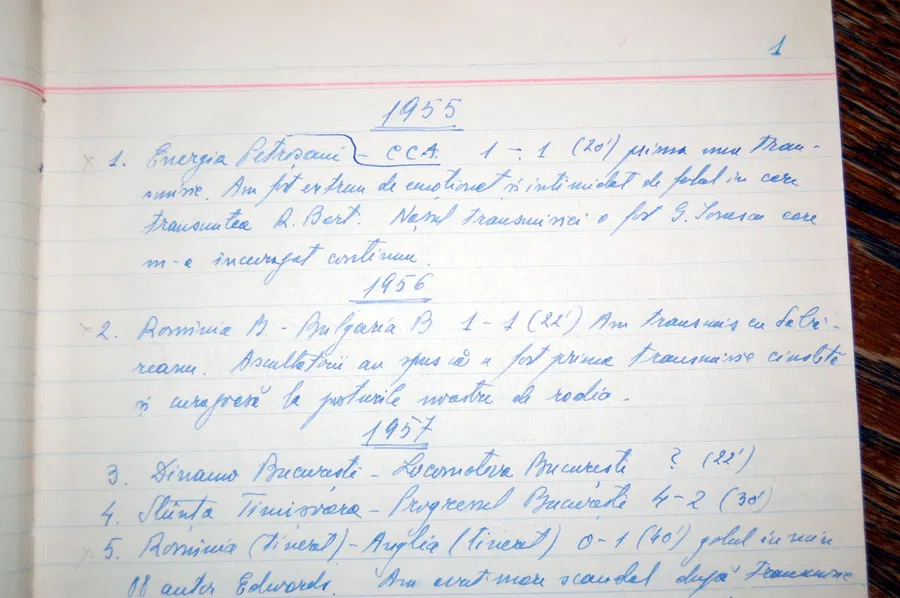 1
1955
x 1. Energia Petroșani - CCA. 1 - 1 (20') prima mea tran-
smisie. Am fost extrem de emoționat și intimidat de felul in care
transmitea R. Bert. Nașul transmisiei a fost G. Ionescu care
m-a incurajat continuu.
1956
x 2. Rominia B - Bulgaria B 1 - 1 (22') Am transmis cu Gabri-
reanu. Ascultatorii au spus că a fost prima transmisie cinstită
și curagoasă la posturile noastre de radio.
1957
3. Dinamo București - Locomotiva București ? (22')
4. Știința Timisoara - Progresul București 4 - 2 (30')
x 5. Rominia (tineret) - Anglia (tineret) 0 - 1 (40') golul in min
88 autor Edwards. Am avut mare scandal după transmisie